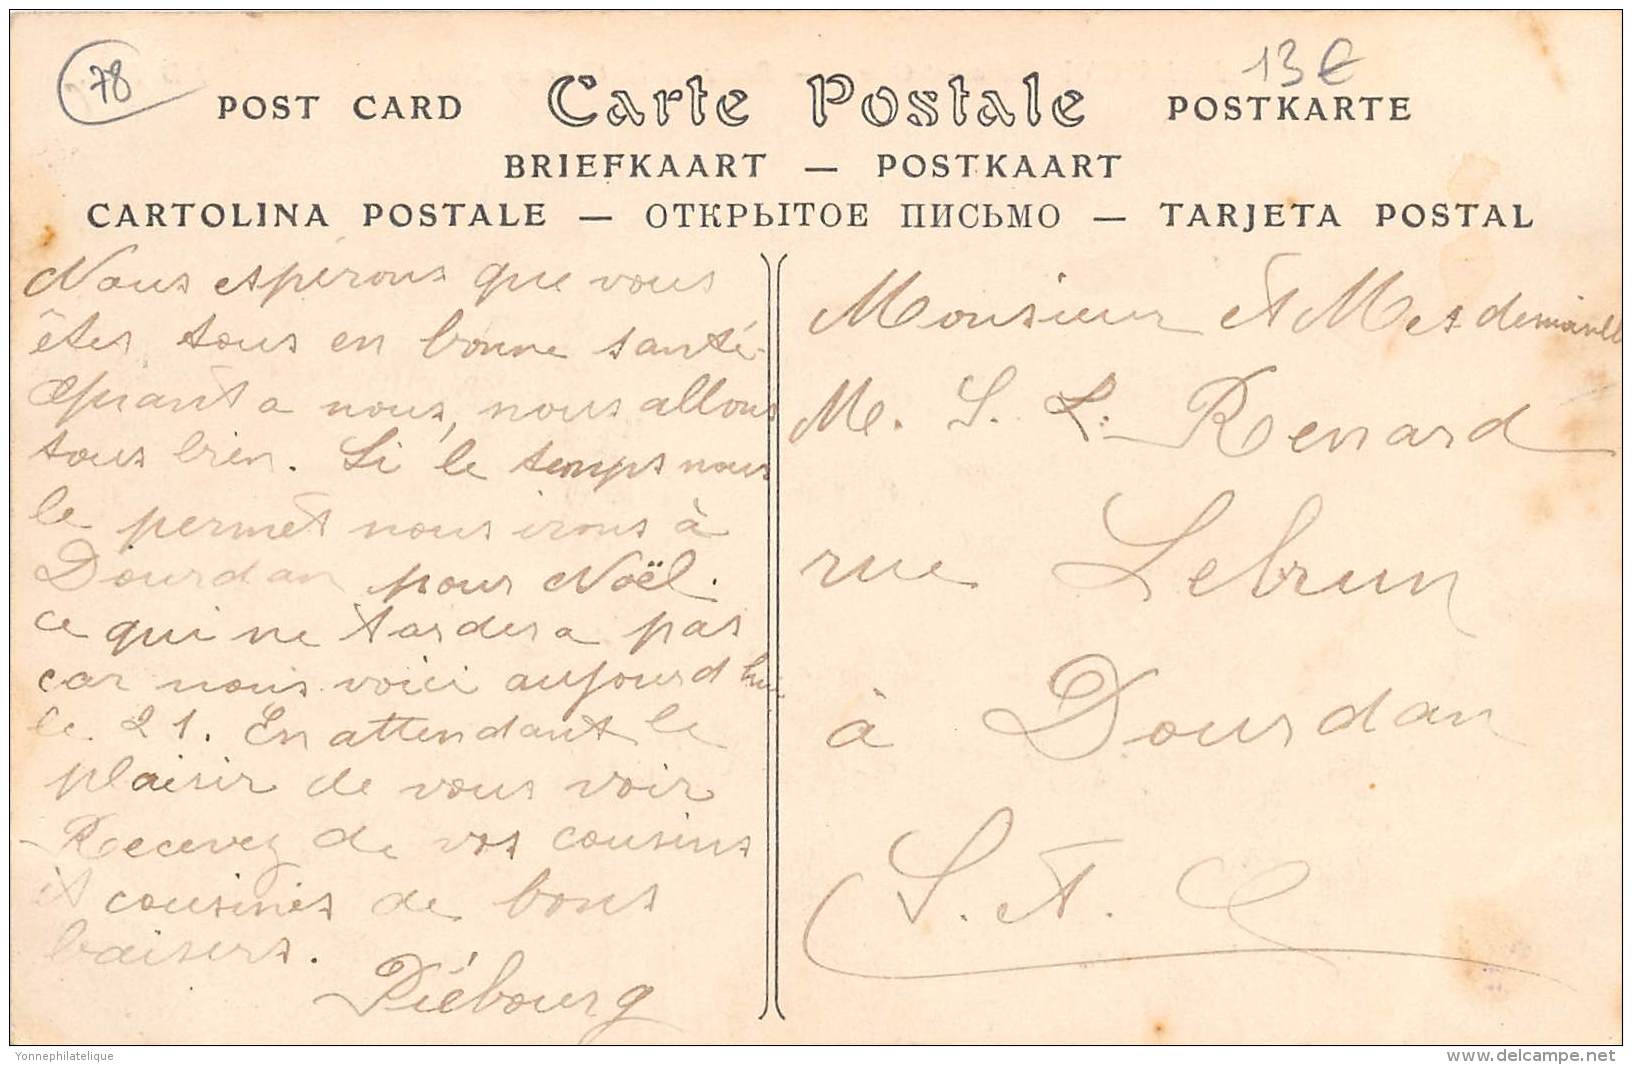 78
13€
POST CARD Carte Postale POSTKARTE
BRIEFKAART — POSTKAART
CARTOLINA POSTALE — ОТКРЫТОЕ ПИСЬМО — TARJETA POSTAL
Nous espérons que vous
êtes tous en bonne santé.
Quant a nous, nous allons
tous bien. Si le temps nous
le permet nous irons à
Dourdan pour Noël.
ce qui ne tardera pas
car nous voici aujourd'hui
le 21. En attendant le
plaisir de vous voir
Recevez de vos cousins
et cousines de bons
baisers.
Piébourg
Monsieur et Mesdemoiselles
M. S. L. Renard
rue Lebrun
à Dourdan
S. et O
Yonnephilatelique
www.delcampe.net